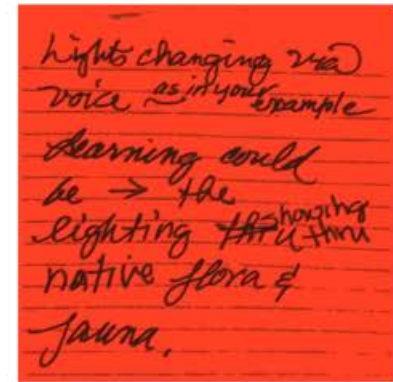 Lights changing via
voice as in your example
Learning could
be → the
lighting showing thru
native flora &
fauna.